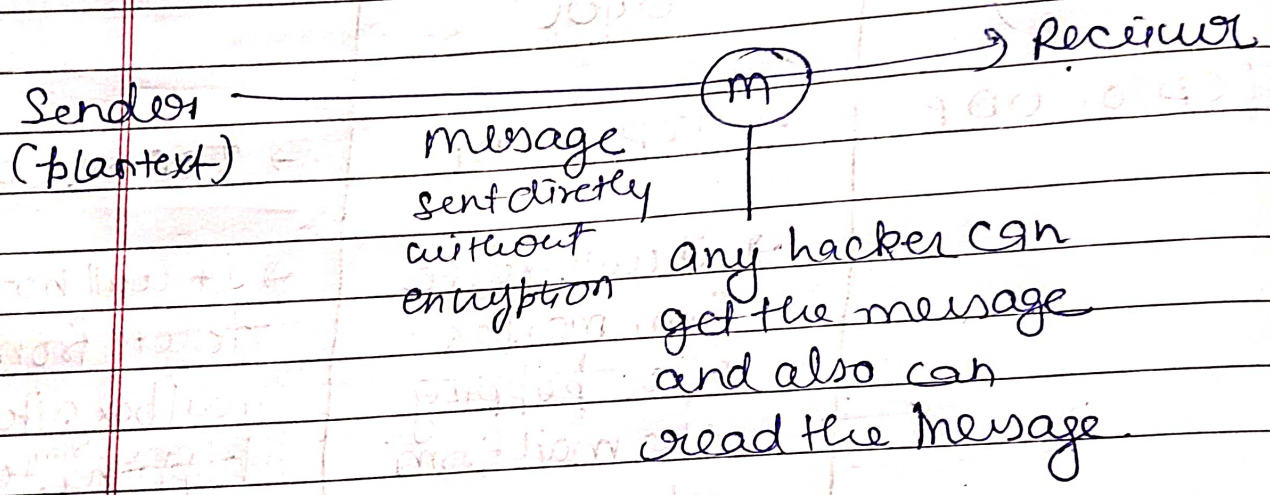 Receiver
Sender
m
(plantext)
message
sent directly
without
encryption
any hacker can
get the message
and also can
read the message.